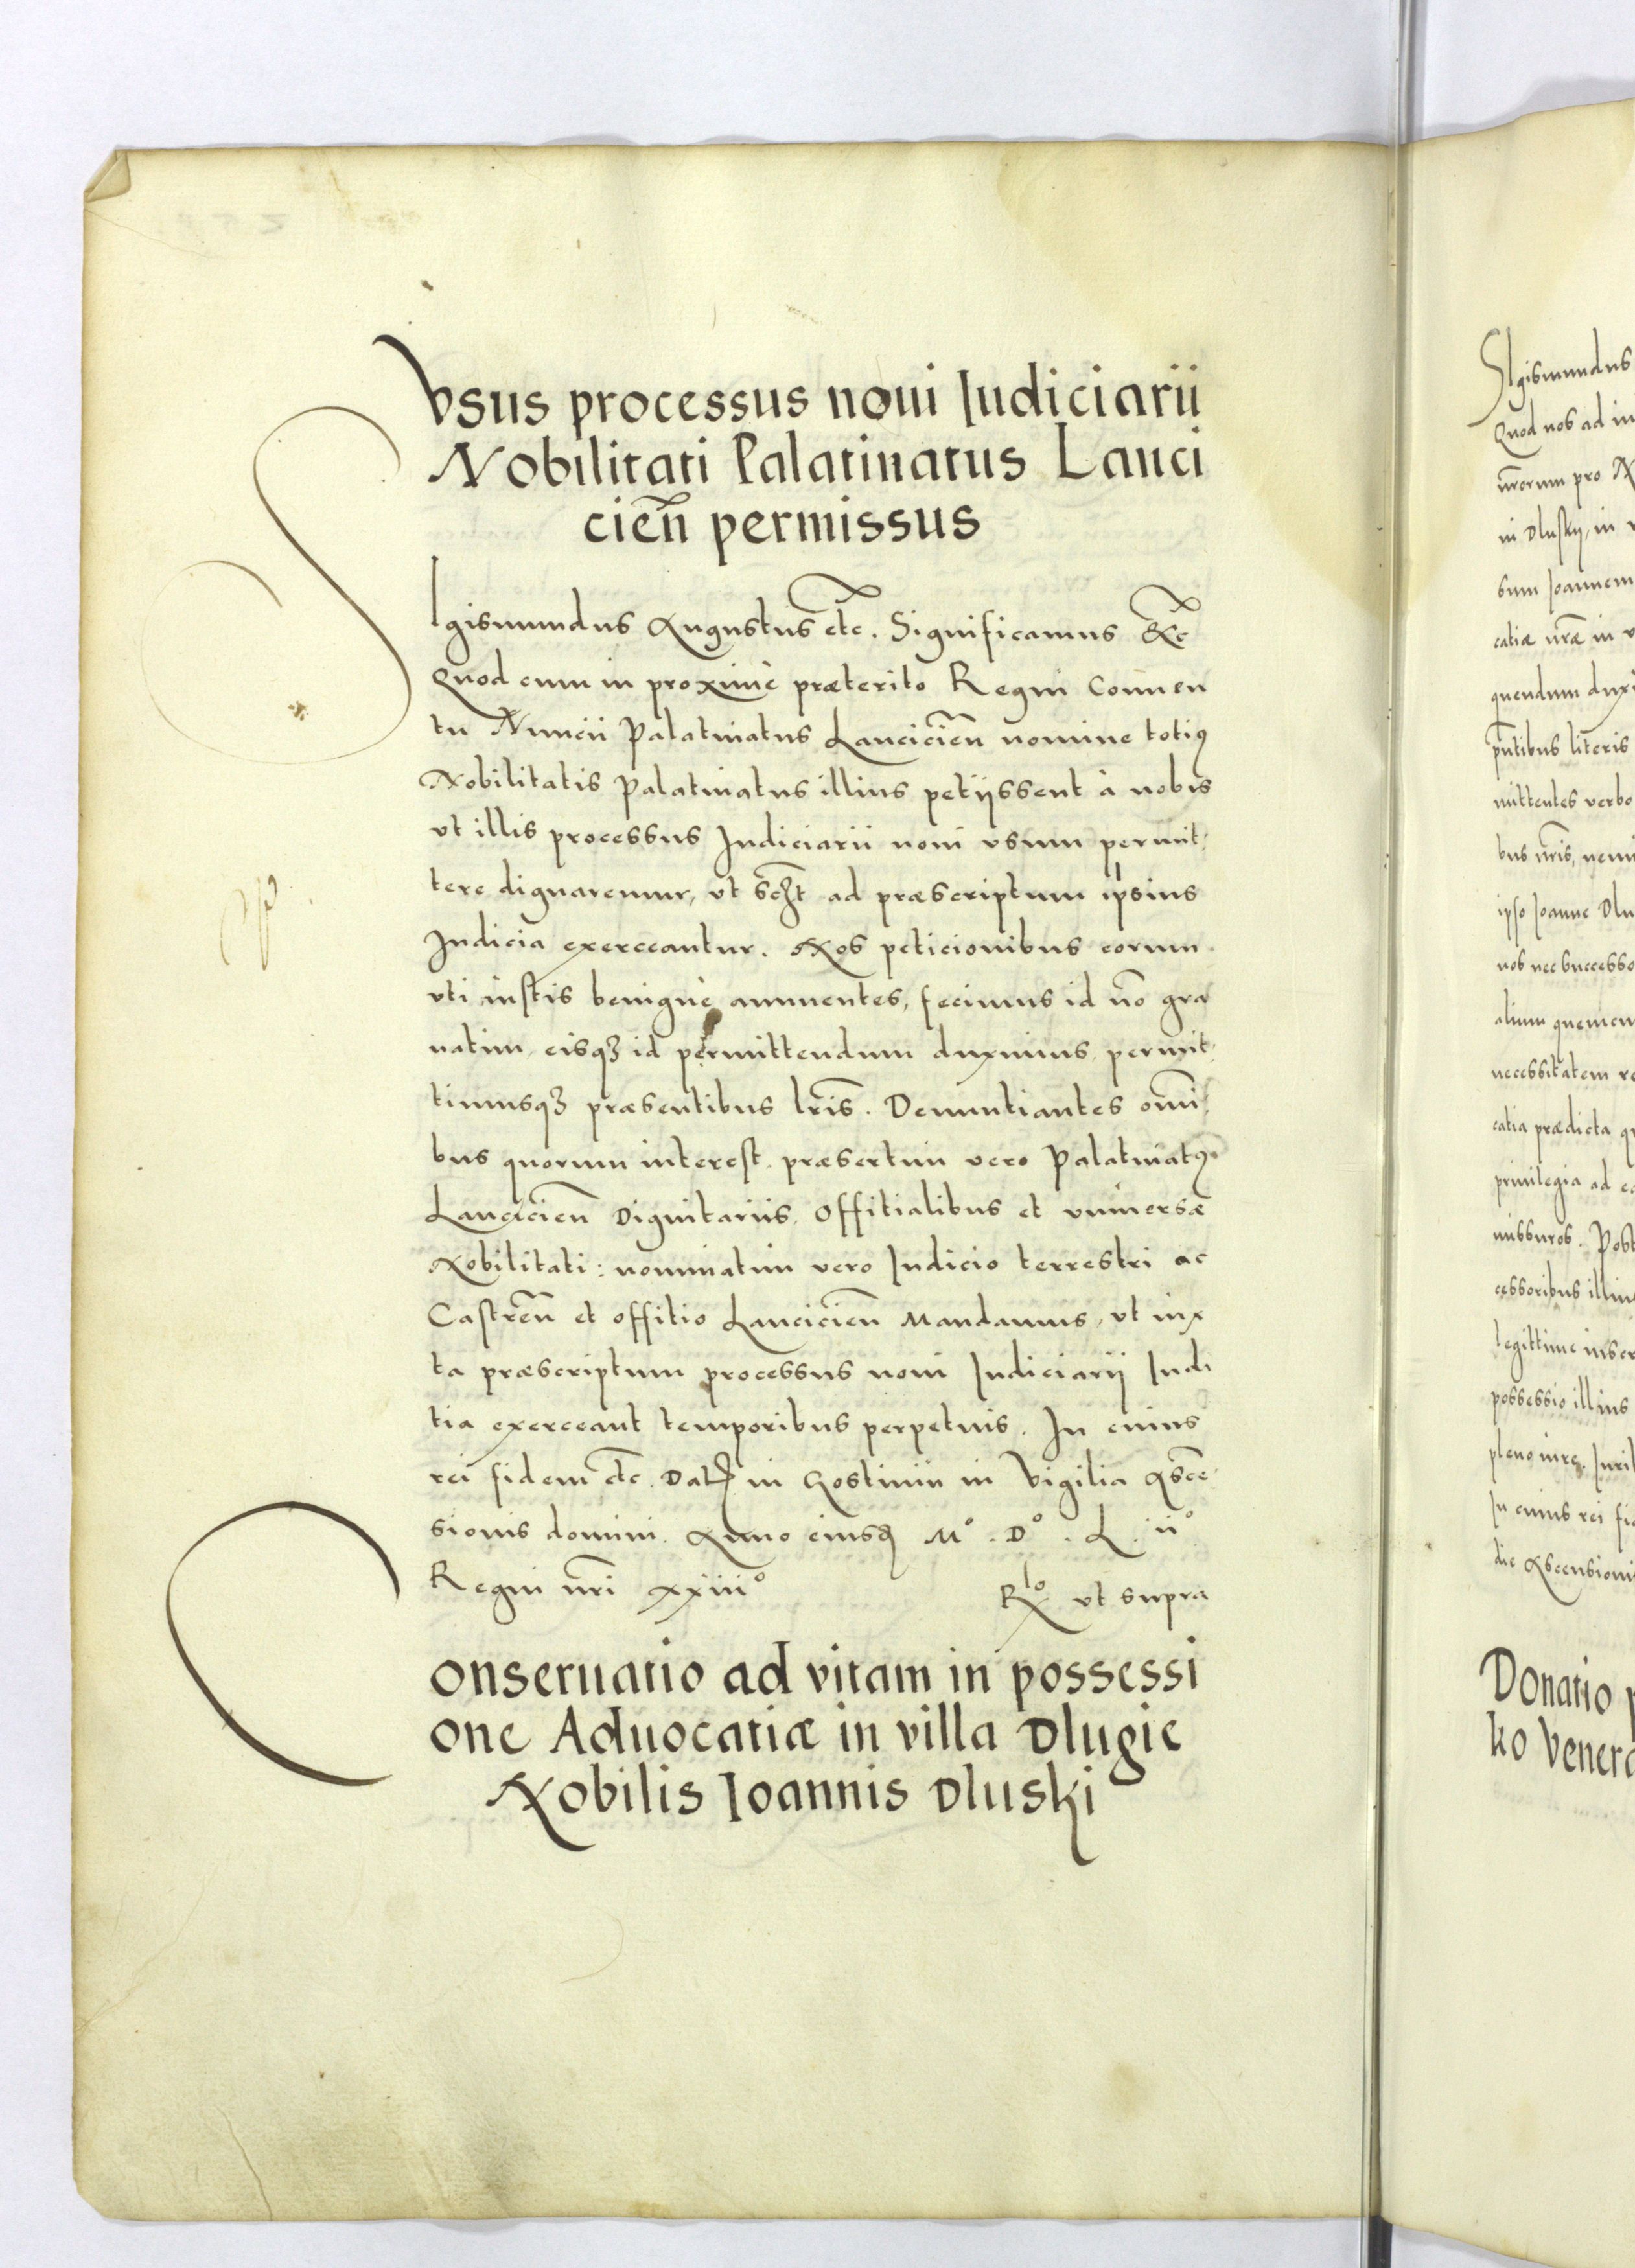 Vsus processus noui Iudiciarii
Nobilitati Palatinatus Lanci
cien̄ permissus
SIgismundus Augustus etc. Significamus &c
Quod cum in proximè præterito Regni Conuen
tu Nuncii Palatinatus Lancicien̄ nomine totiꝰ
Nobilitatis Palatinatus illius petijssent à nobis
vt illis processus Iudiciarii noui vsum permit
tere dignaremur, vt sclt̄ ad præscriptum ipsius
Iudicia exerceantur. Nos peticionibus eorum
vti iustis benignè annuentes, fecimus id nō gra
uatim, eisqꝫ id permittendum duximus, permit
timusqꝫ præsentibus lrīs. Denuntiantes omī
bus quorum interest. præsertim vero Palatinatꝰ
Lancicien̄ Dignitariis, Offitialibus et vniuersæ
Nobilitati: nominatim vero Iudicio terrestri ac
Castren̄ et offitio Lancicien̄ Mandamus, vt iux
ta præscriptum processus noui Iudiciarij Iudi
tia exerceant temporibus perpetuis. In cuius
rei fidem etc. Dat in Gostinin in Vigilia Asce
sionis domini. Anno eiusd M° . D° . L . ii°
Regni nrī xxiii°
Rlo vt supra
Conseruatio ad vitam in possessi
one Aduocatiæ in villa Dlugie
Nobilis Ioannis Dluski
SIgismundus
Quod nos ad in
nrōrum pro N
in Dlusky, in
sum Ioannem
catiæ nrǣ in v
quendum duxi
pn̄tibus literis
mittentes verbo
bus nrīs, nemi
ipso Ioanne Dlu
nos nec successo
alium quemcu
necessitatem re
catia prædicta q
priuilegia ad e
missuros. Post
cessoribus illiu
legittime inscr
possessio illius
pleno iure. Iuri
In cuius rei fi
die Ascensioni
Donatio p
ko Venera